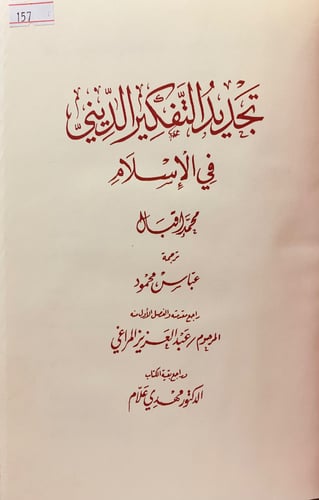 157
تجديد التفكير الديني
في الإسلام
محمد إقبال
ترجمة
عباس محمود
راجع مقدمته والفصل الأول منه
المرحوم / عبد العزيز المراغي
وراجع بقية الكتاب
الدكتور مهدي علام